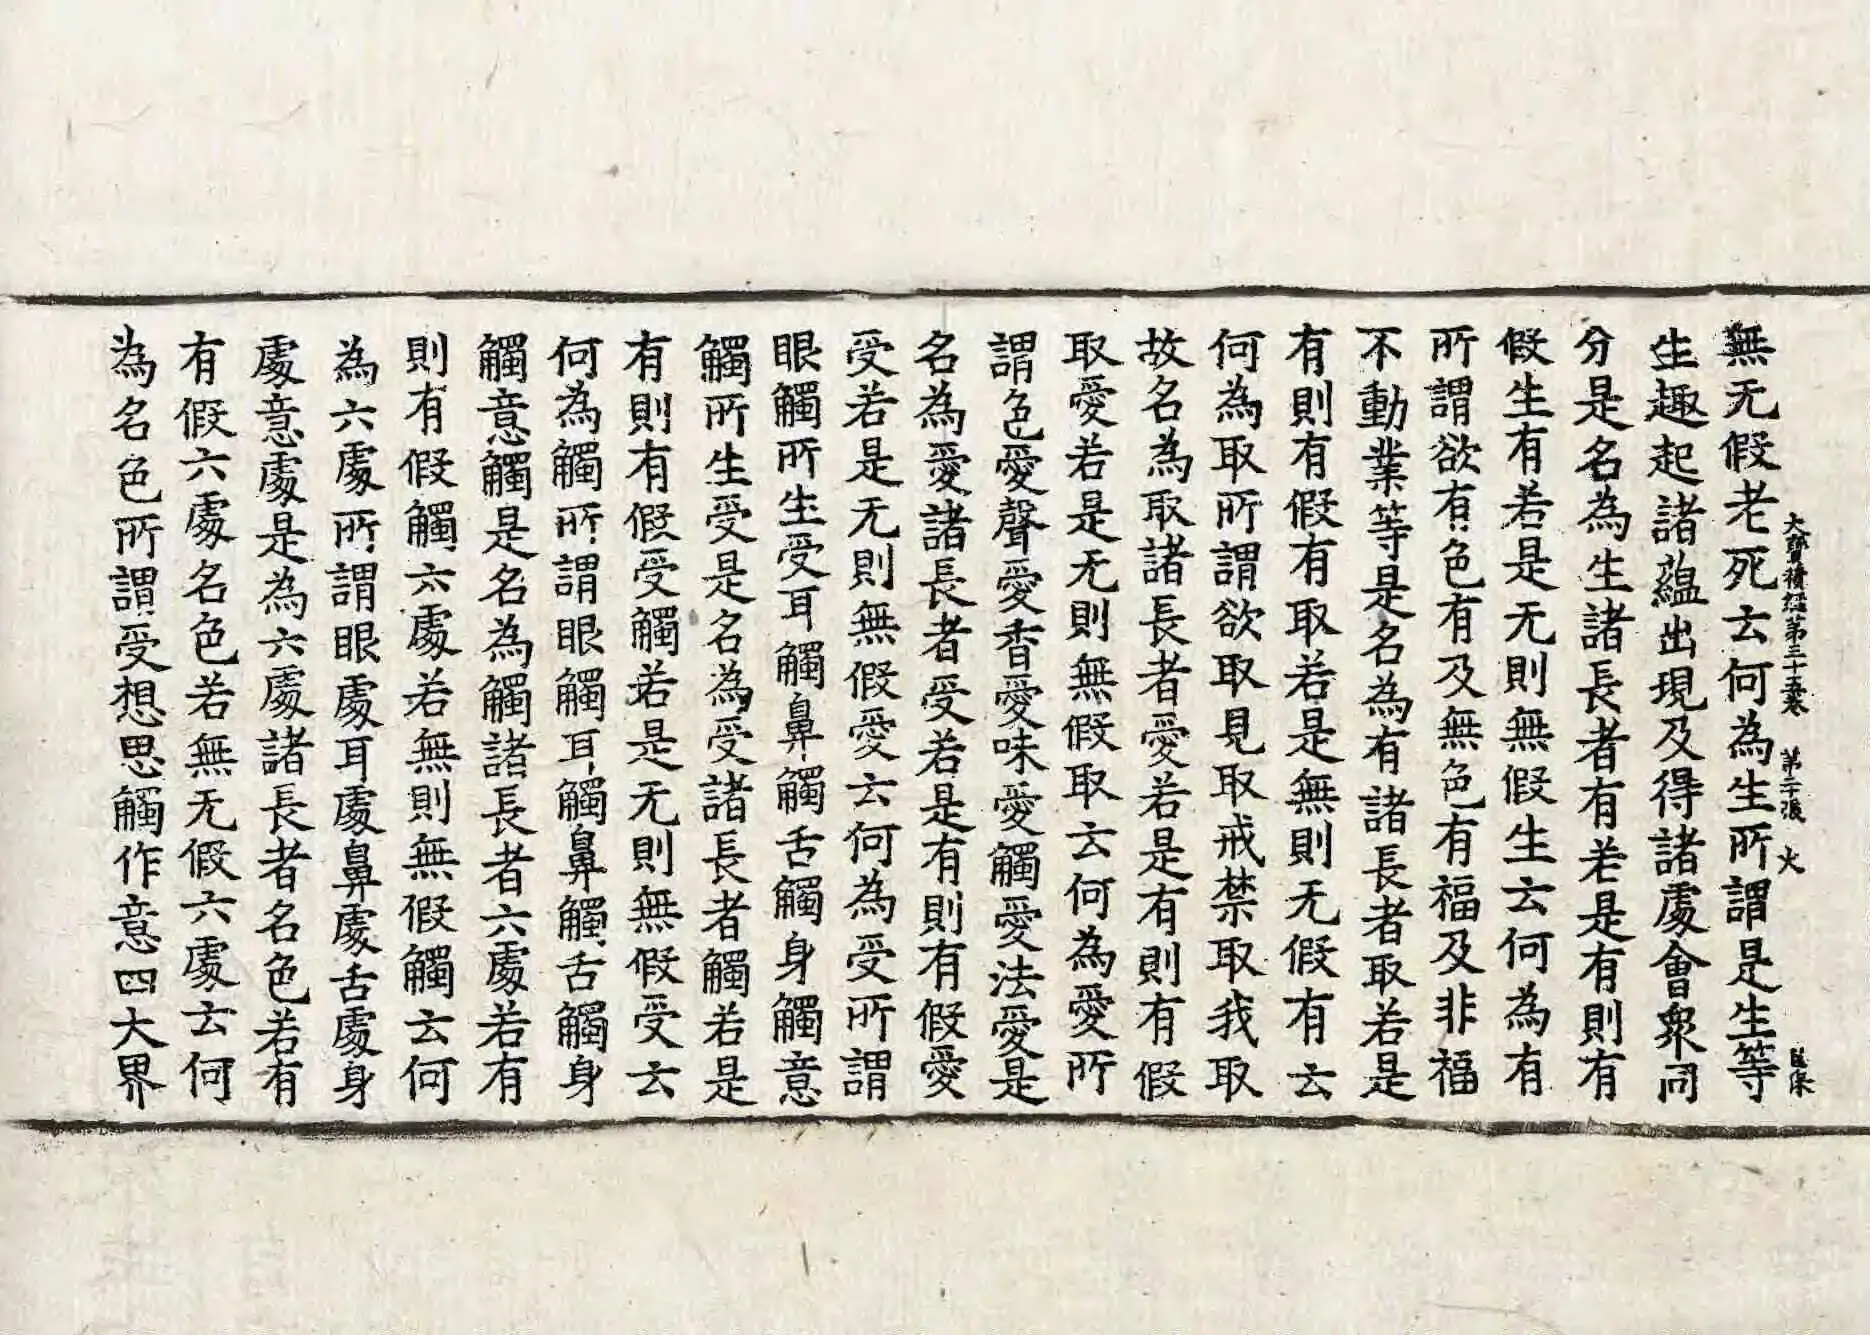 大寶積經第三十五卷 第二十張 火
無无假老死云何為生所謂是生等
生趣起諸蘊出現及得諸處會衆同
分是名為生諸長者有若是有則有
假生有若是无則無假生云何為有
所謂欲有色有及無色有福及非福
不動業等是名為有諸長者取若是
有則有假有取若是無則无假有云
何為取所謂欲取見取戒禁取我取
故名為取諸長者愛若是有則有假
取愛若是无則無假取云何為愛所
謂色愛聲愛香愛味愛觸愛法愛是
名為愛諸長者受若是有則有假愛
受若是无則無假愛云何為受所謂
眼觸所生受耳觸鼻觸舌觸身觸意
觸所生受是名為受諸長者觸若是
有則有假受觸若是无則無假受云
何為觸所謂眼觸耳觸鼻觸舌觸身
觸意觸是名為觸諸長者六處若有
則有假觸六處若無則無假觸云何
為六處所謂眼處耳處鼻處舌處身
處意處是為六處諸長者名色若有
有假六處名色若無无假六處云何
為名色所謂受想思觸作意四大界